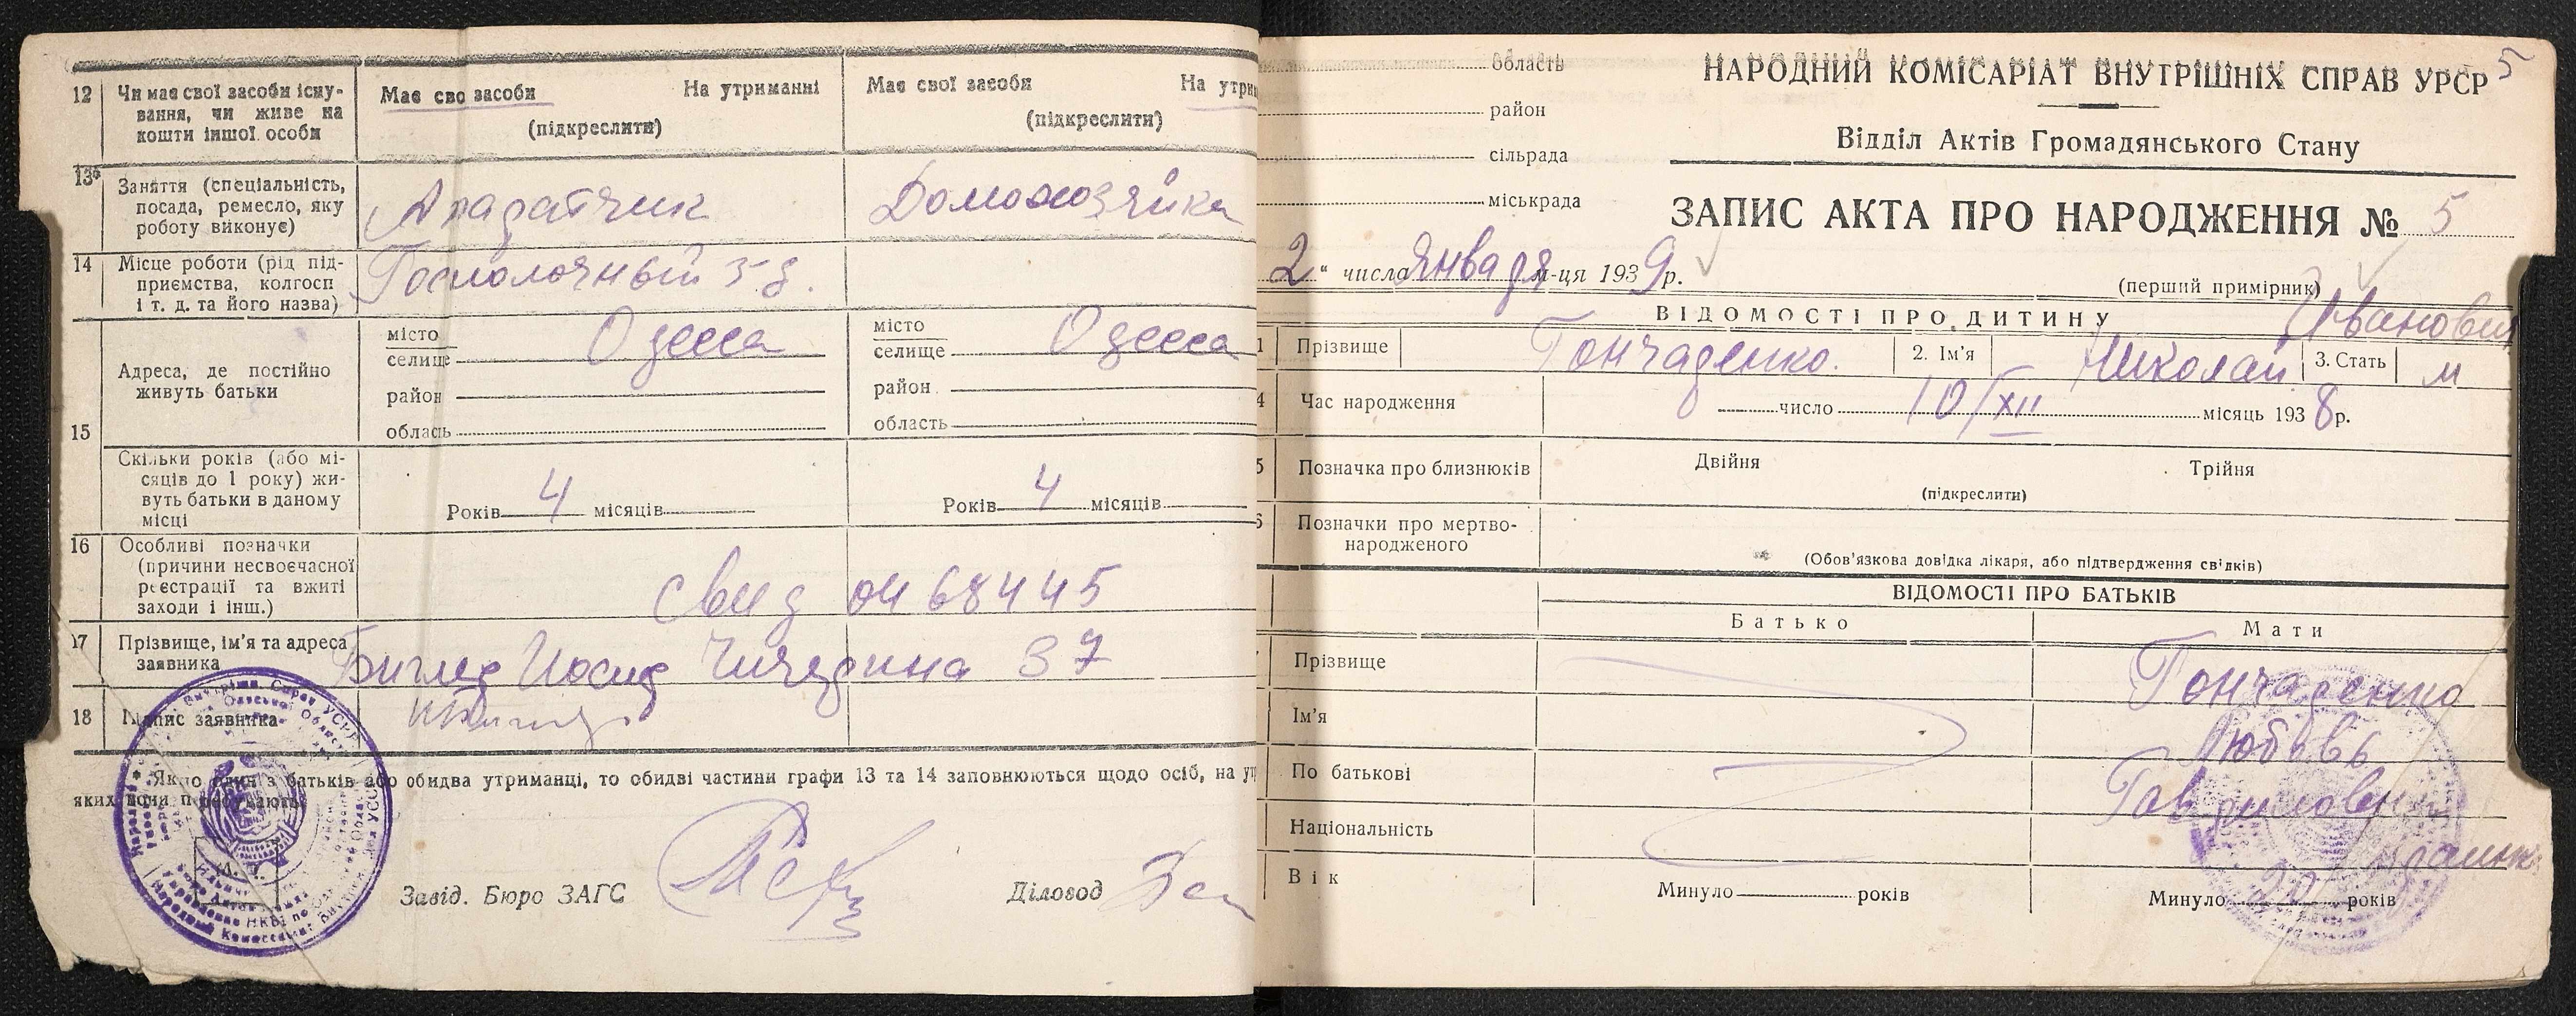 12 Чи має свої засоби існування, чи живе на кошти іншої особи
Має сво засоби На утриманні
(підкреслити)
Має свої засоби На утрим
(підкреслити)
13* Заняття (спеціальність, посада, ремесло, яку роботу виконує)
Апаратчик
Домохозяйка
14 Місце роботи (рід підприємства, колгосп і т. д. та його назва)
Госмолочный з-д.
15 Адреса, де постійно живуть батьки
місто
селище Одесса
район
область
місто
селище Одесса
район
область
Скільки років (або місяців до 1 року) живуть батьки в даному місці
Років 4 місяців
Років 4 місяців
16 Особливі позначки (причини несвоєчасної реєстрації та вжиті заходи і інш.)
Свид 0468445
17 Прізвище, ім'я та адреса заявника
Биглер Иосиф Чичерина 37
18 Підпис заявника
Якщо один з батьків або обидва утриманці, то обидві частини графи 13 та 14 заповнюються щодо осіб, на ут
яких вони перебувають.
М. П.
Завід. Бюро ЗАГС
Діловод
область
район
сільрада
міськрада
НАРОДНИЙ КОМІСАРІАТ ВНУТРІШНІХ СПРАВ УРСР 5
Відділ Актів Громадянського Стану
ЗАПИС АКТА ПРО НАРОДЖЕННЯ № 5
2 " числа января м-ця 1939 р.
(перший примірник)
ВІДОМОСТІ ПРО ДИТИНУ
Иванович
1 Прізвище Гончаренко. 2. Ім'я Николай 3. Стать м
4 Час народження число 10/XII місяць 1938 р.
5 Позначка про близнюків Двійня Трійня
(підкреслити)
6 Позначки про мертвонародженого
(Обов'язкова довідка лікаря, або підтвердження свідків)
ВІДОМОСТІ ПРО БАТЬКІВ
Батько Мати
Прізвище Гончаренко
Ім'я Любовь
По батькові Гавриловн
Національність
Вік Минуло років Минуло років